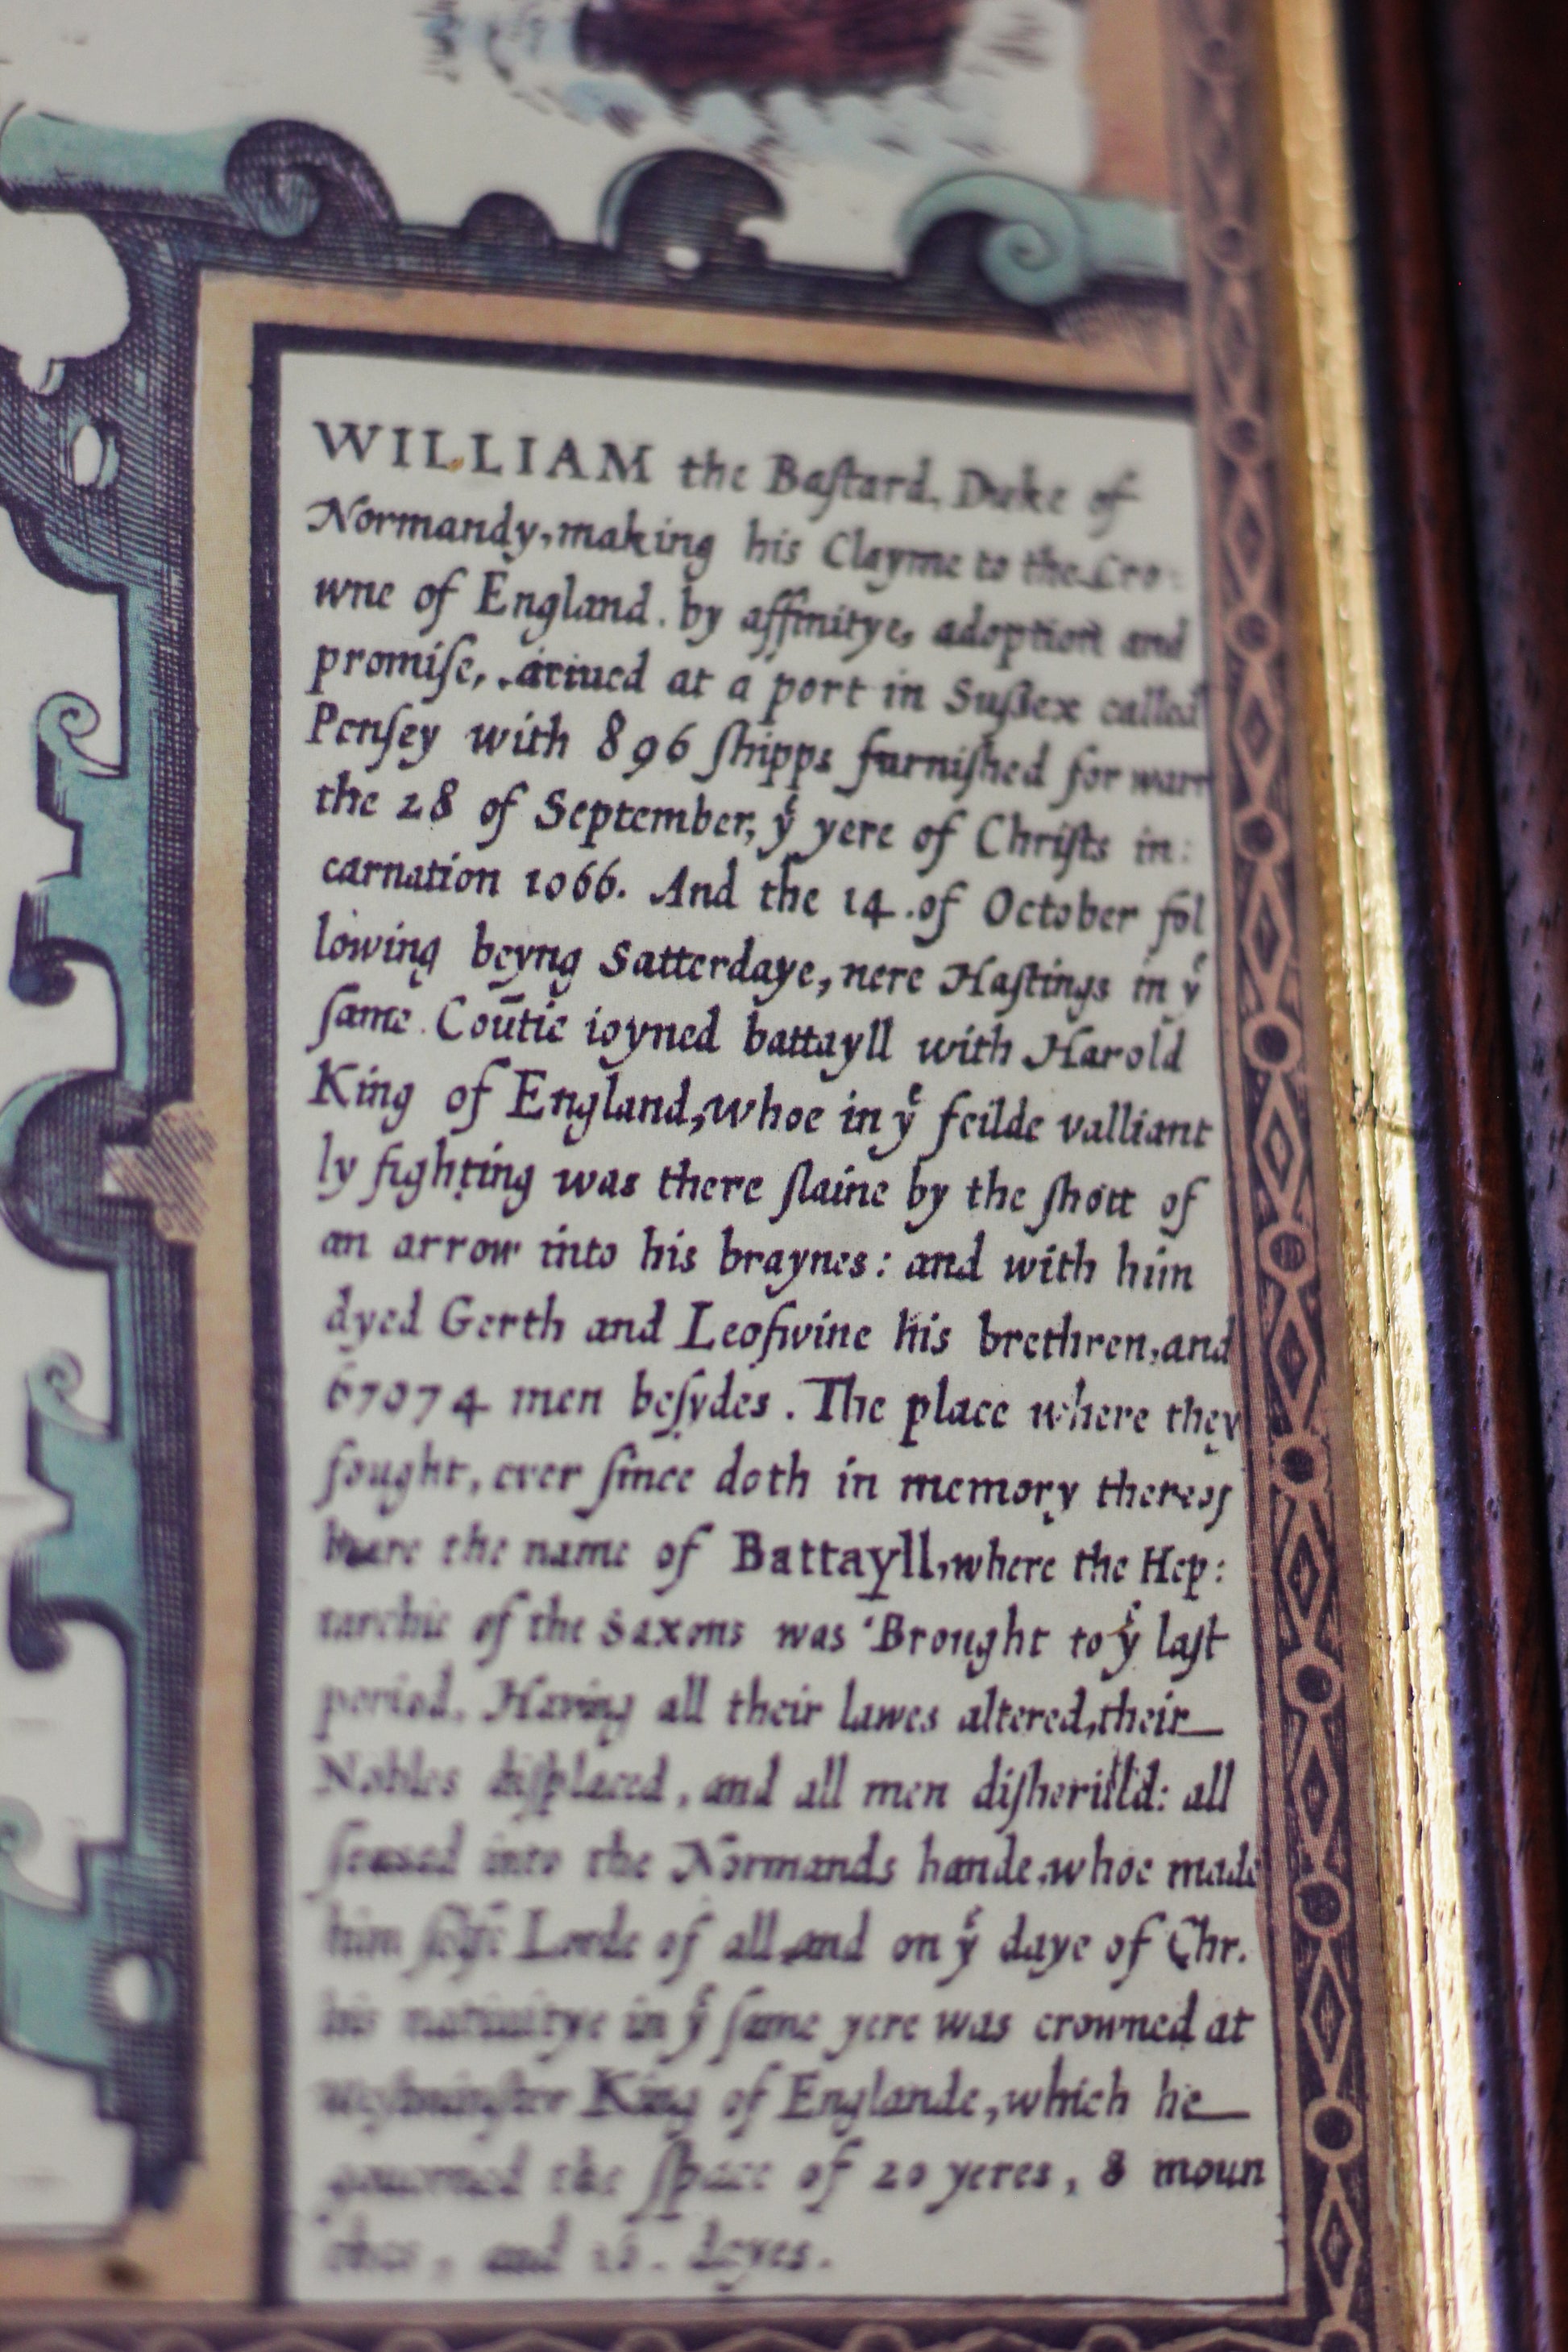 WILLIAM the Baſtard, Duke of
Normandy, making his Clayme to the Cro-
wne of England. by affinitye, adoption and
promiſe, ariued at a port in Suſſex called
Penſey with 896 ſhipps furniſhed for warr
the 28 of September, yͤ yere of Chriſts in:
carnation 1066. And the 14. of October fol
lowing beyng Satterdaye, nere Haſtings in yͤ
ſame Coūtie ioyned battayll with Harold
King of England, whoe in yͤ feilde valliant
ly fighting was there ſlaine by the ſhott of
an arrow into his braynes: and with him
dyed Gerth and Leofwine his brethren, and
67074 men beſydes. The place where they
fought, ever ſince doth in memory thereof
beare the name of Battayll, where the Hep:
tarchie of the Saxons was Brought to yͤ laſt
period. Having all their lawes altered, their
Nobles diſplaced, and all men diſherited: all
ſeased into the Normands hande, whoe made
him ſelfe Lorde of all, and on yͤ daye of Chr.
his natiuitye in yͤ ſame yere was crowned at
Weſtminſter King of Englande, which he
gouerned the ſpace of 20 yeres, 8 moun
thes, and dayes.